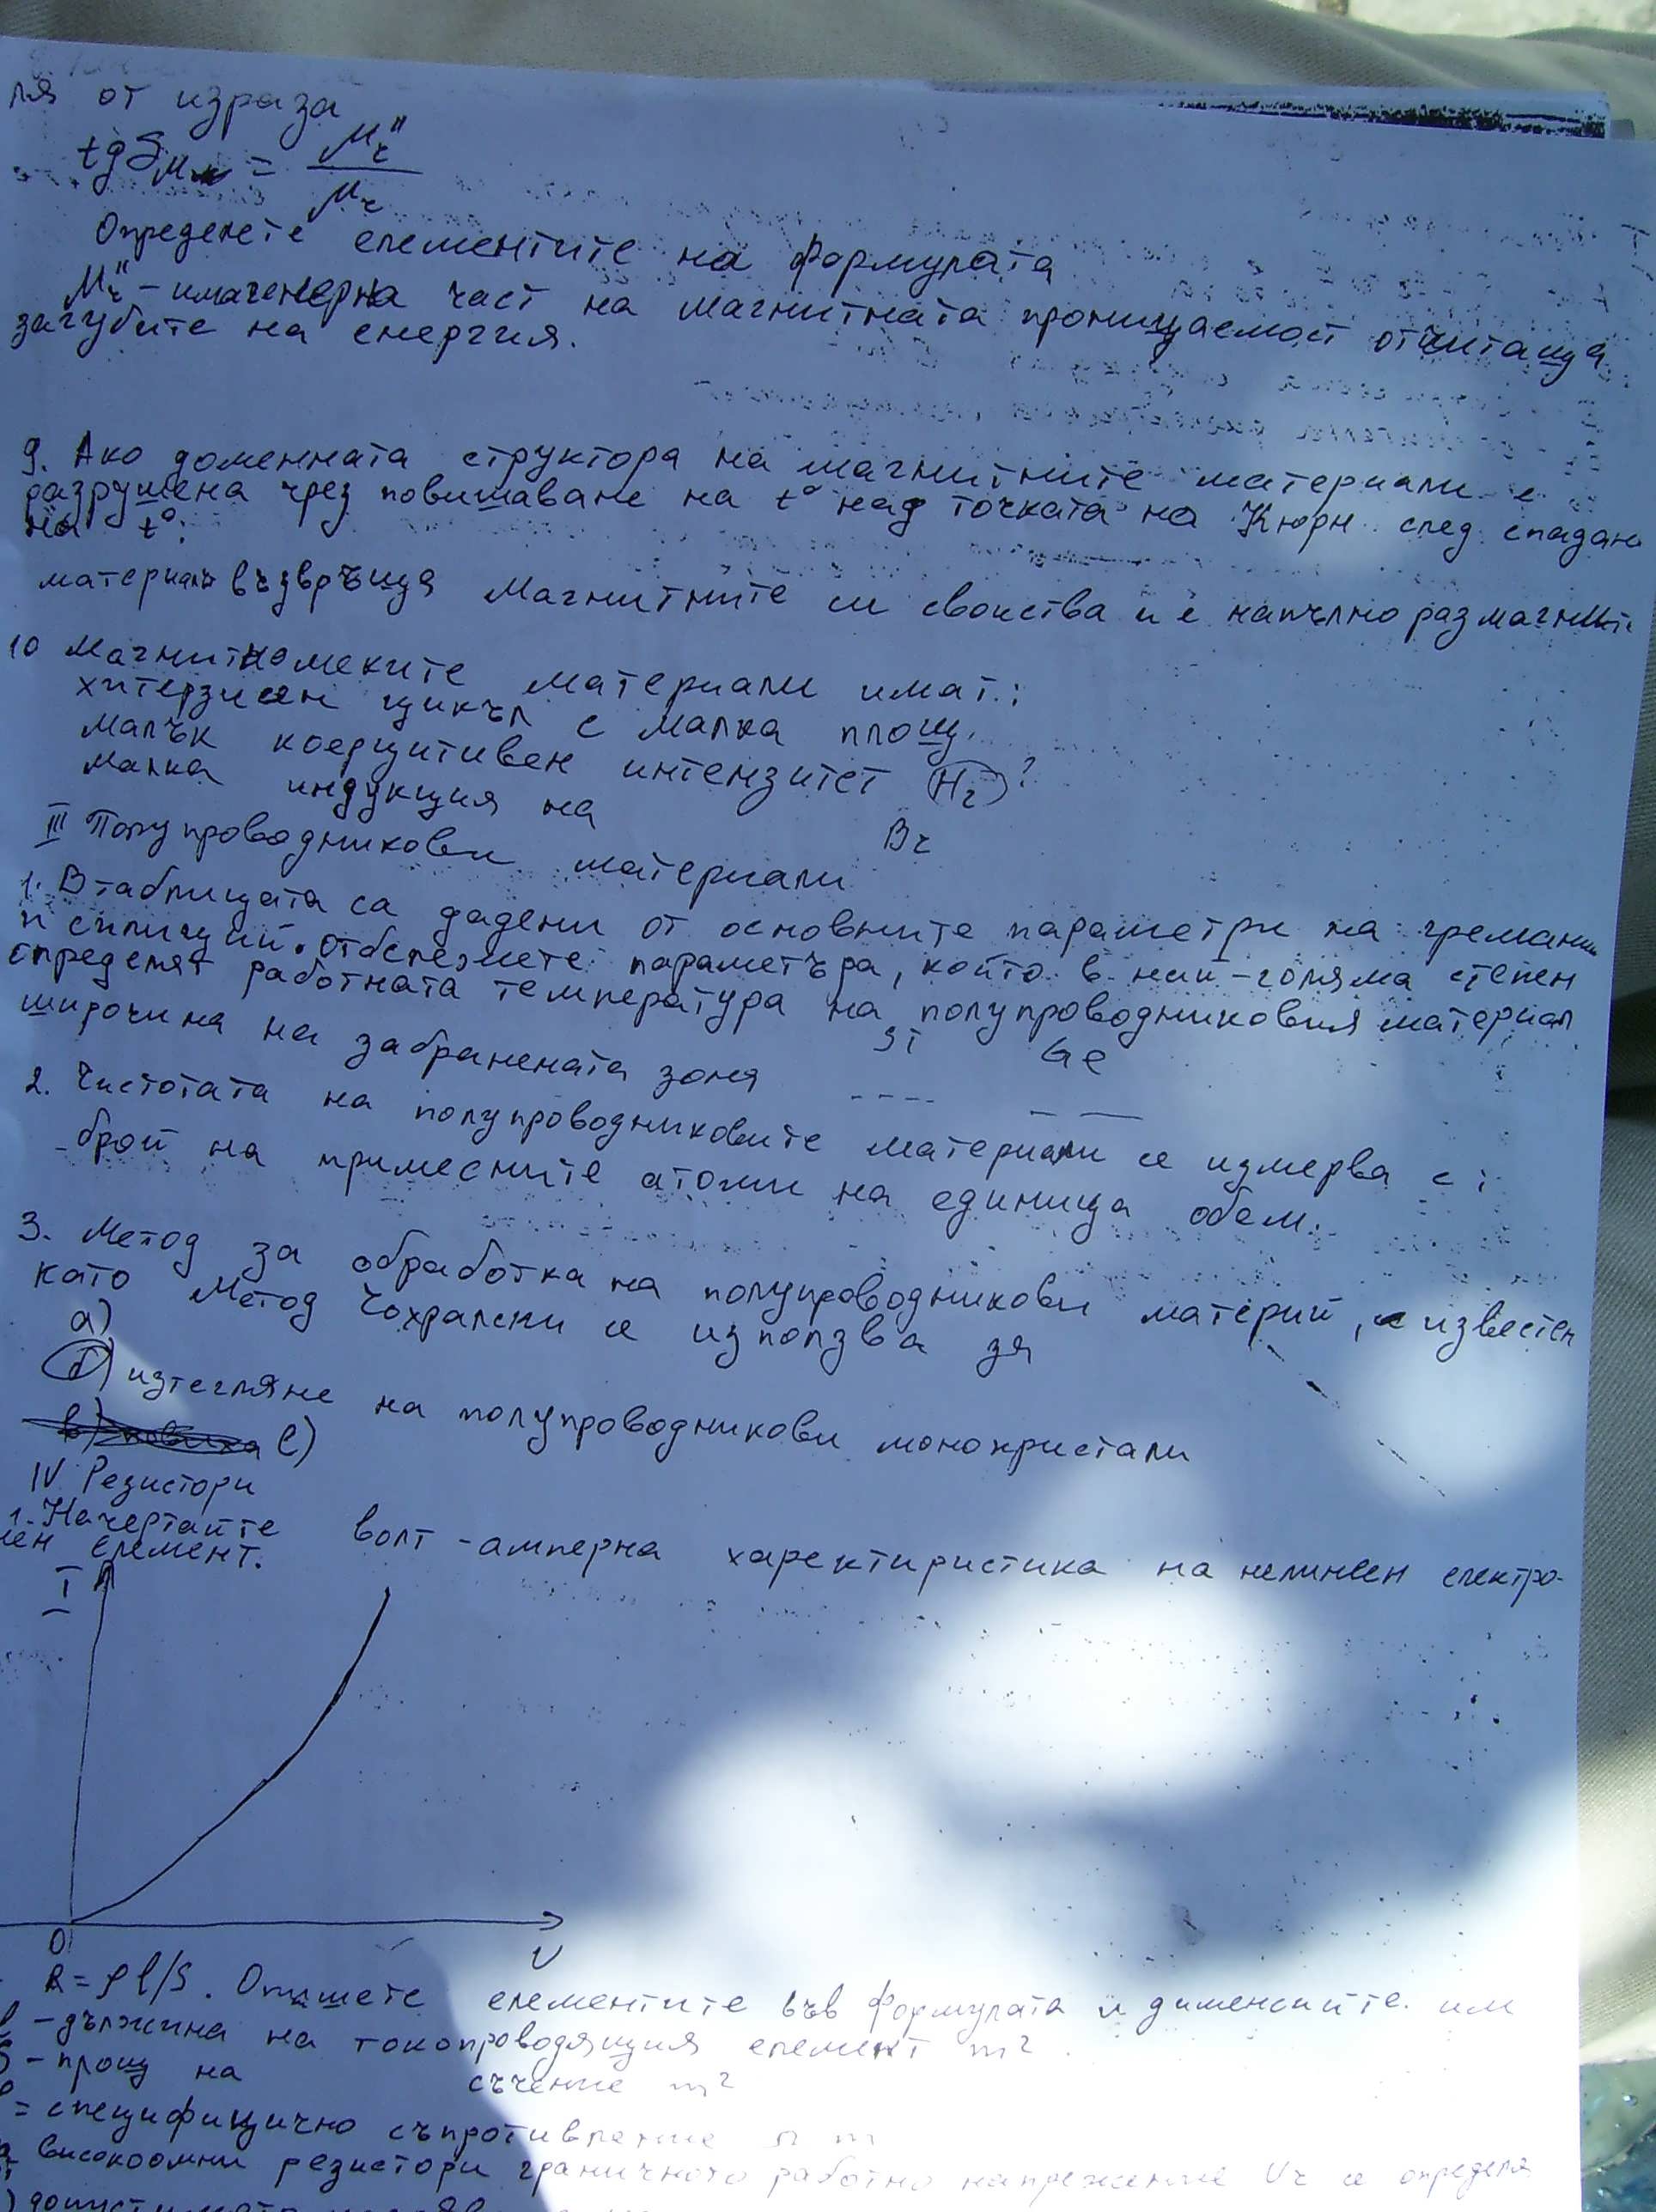 ля от израза
tgδμ = μr" / μr
Определете елементите на формулата
μr" - имагенерна част на магнитната проницаемост отчитаща
загубите на енергия.
9. Ако доменната структора на магнитните материали е
разрушена чрез повишаване на t° над точката на Кюри след спадане
на t°:
материала възвръща магнитните си свойства и е напълно размагнит
10 Магнитномеките материали имат:
хитерзисен цикъл с малка площ.
малък коерцитивен интензитет Hr?
малка индукция на Br
III Полупроводникови материали
1. В таблицата са дадени от основните параметри на германи
и силиций. отбележете параметъра, който в най-голяма степен
определят работната температура на полупроводниковия материал
Si Ge
широчина на забранената зоня ---- -- --
2. Чистотата на полупроводниковите материали се измерва с:
- брой на примесните атоми на единица обем.
3. Метод за обработка на полупроводникови материй, е известен
като Метод Чохралски се използва зя
а)
б) изтегляне на полупроводникови монокристали
в)
IV Резистори
1. Начертайте волт-амперна характиристика на нелинеен електро-
нен елемент.
I
0
U
R = ρl/S. Опишете елементите във формулата и дименсиите им
l - дължина на токопроводящия елемент m²
S - площ на съчение m²
ρ = специфицично съпротивление Ω m
високоомни резистори граничното работно напрежение Ur се определя